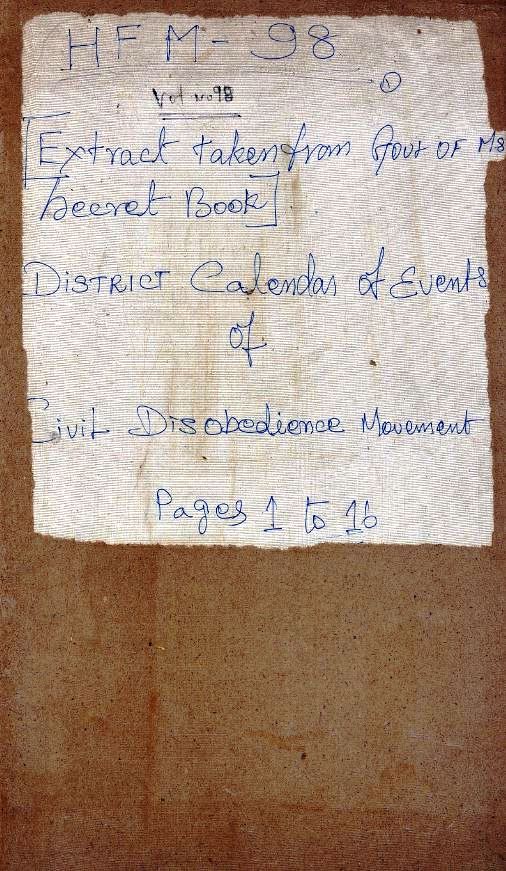 HFM - 98
①
Vol no 98
[Extract taken from Govt OF MS
Secret Book]
DISTRICT Calendar of Events
of
Civil Disobedience Movement
Pages 1 to 16